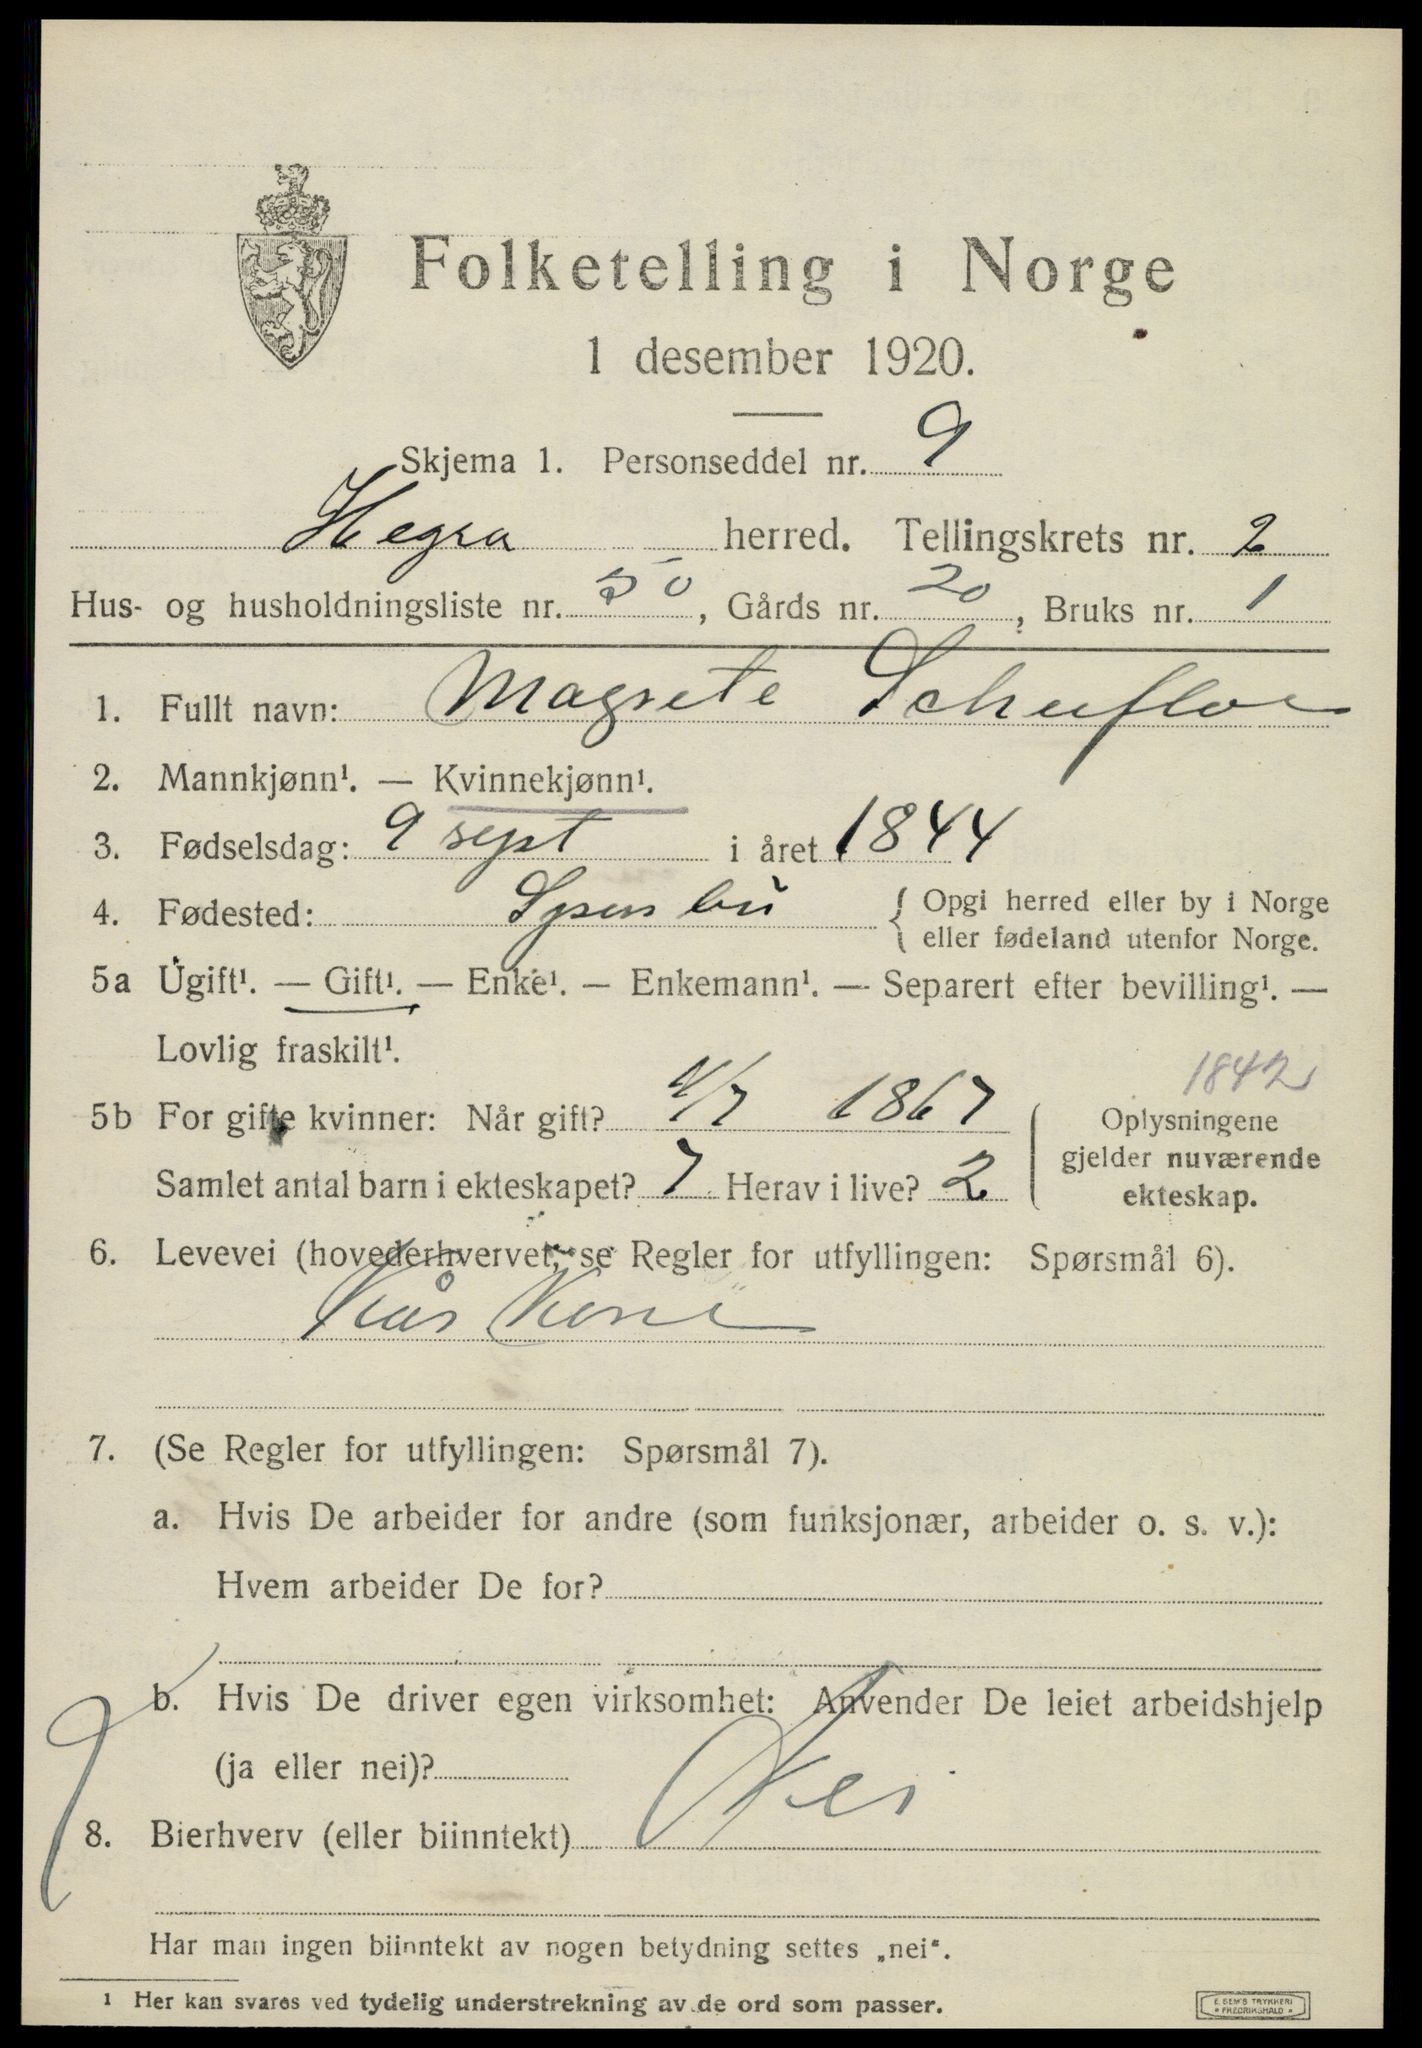 Folketelling i Norge
1 desember 1920.
Skjema 1. Personseddel nr. 9
Hegra herred. Tellingskrets nr. 2
Hus- og husholdningsliste nr. 50, Gårds nr. 20, Bruks nr. 1
1. Fullt navn: Magrete Schufloe
2. Mannkjønn¹. — Kvinnekjønn¹.
3. Fødselsdag: 9 sept i året 1844
4. Fødested: { Opgi herred eller by i Norge
eller fødeland utenfor Norge.
5a Ugift¹. — Gift¹. — Enke¹. — Enkemann¹. — Separert efter bevilling¹. —
Lovlig fraskilt¹.
1842
5b For gifte kvinner: Når gift? 4/7 1867 Oplysningene
gjelder nuværende
Samlet antal barn i ekteskapet? 7 Herav i live? 2 ekteskap.
6. Levevei (hovederhvervet, se Regler for utfyllingen: Spørsmål 6).
Kår Kone
7. (Se Regler for utfyllingen: Spørsmål 7).
a. Hvis De arbeider for andre (som funksjonær, arbeider o. s. v.):
Hvem arbeider De for?
b. Hvis De driver egen virksomhet: Anvender De leiet arbeidshjelp
(ja eller nei)?
9
8. Bierhverv (eller biinntekt) Nei
Har man ingen biinntekt av nogen betydning settes „nei“.
¹ Her kan svares ved tydelig understrekning av de ord som passer.
E. SEM'S TRYKKERI
FREDRIKSHALD